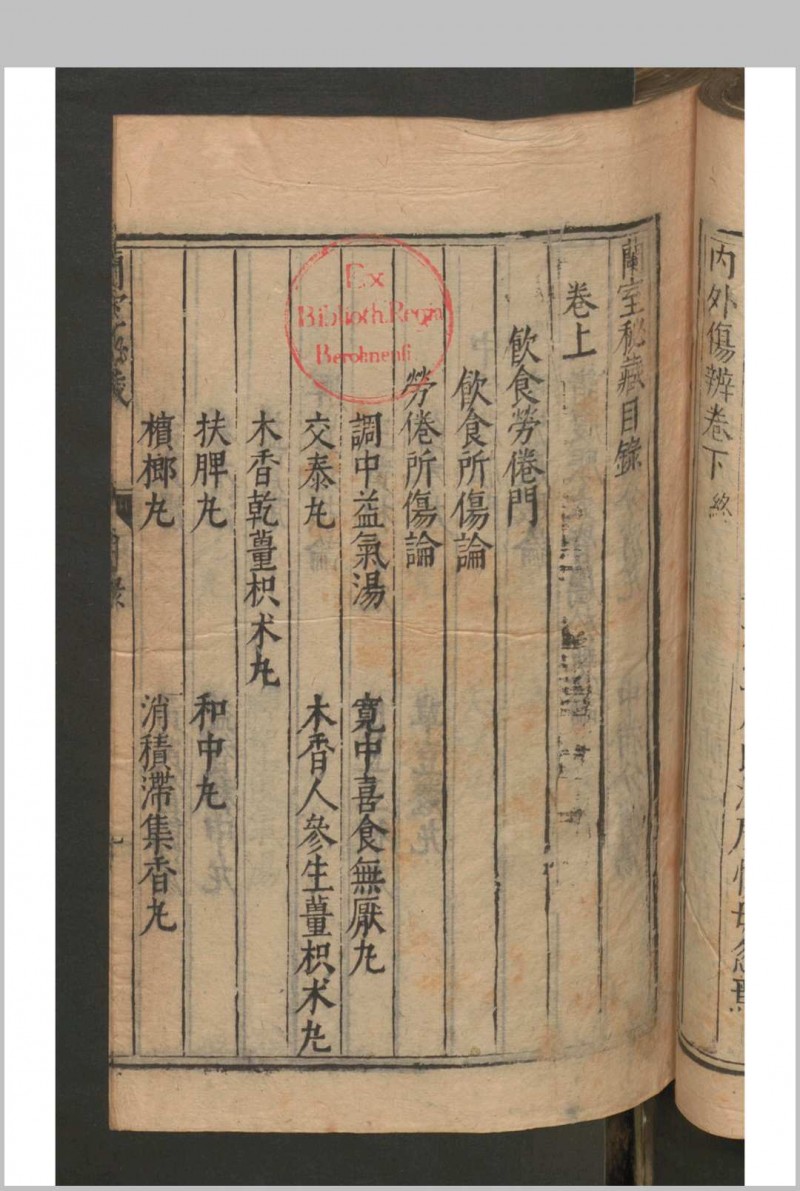 內外傷辨卷下 終
蘭室秘藏目錄
卷上
飲食勞倦門
飲食所傷論
勞倦所傷論
調中益氣湯 寬中喜食無厭丸
交泰丸 木香人參生薑枳朮丸
木香乾薑枳朮丸
扶脾丸 和中丸
檳榔丸 消積滯集香丸
蘭室秘藏 目錄
Ex
Biblioth. Regia
Berolinensi